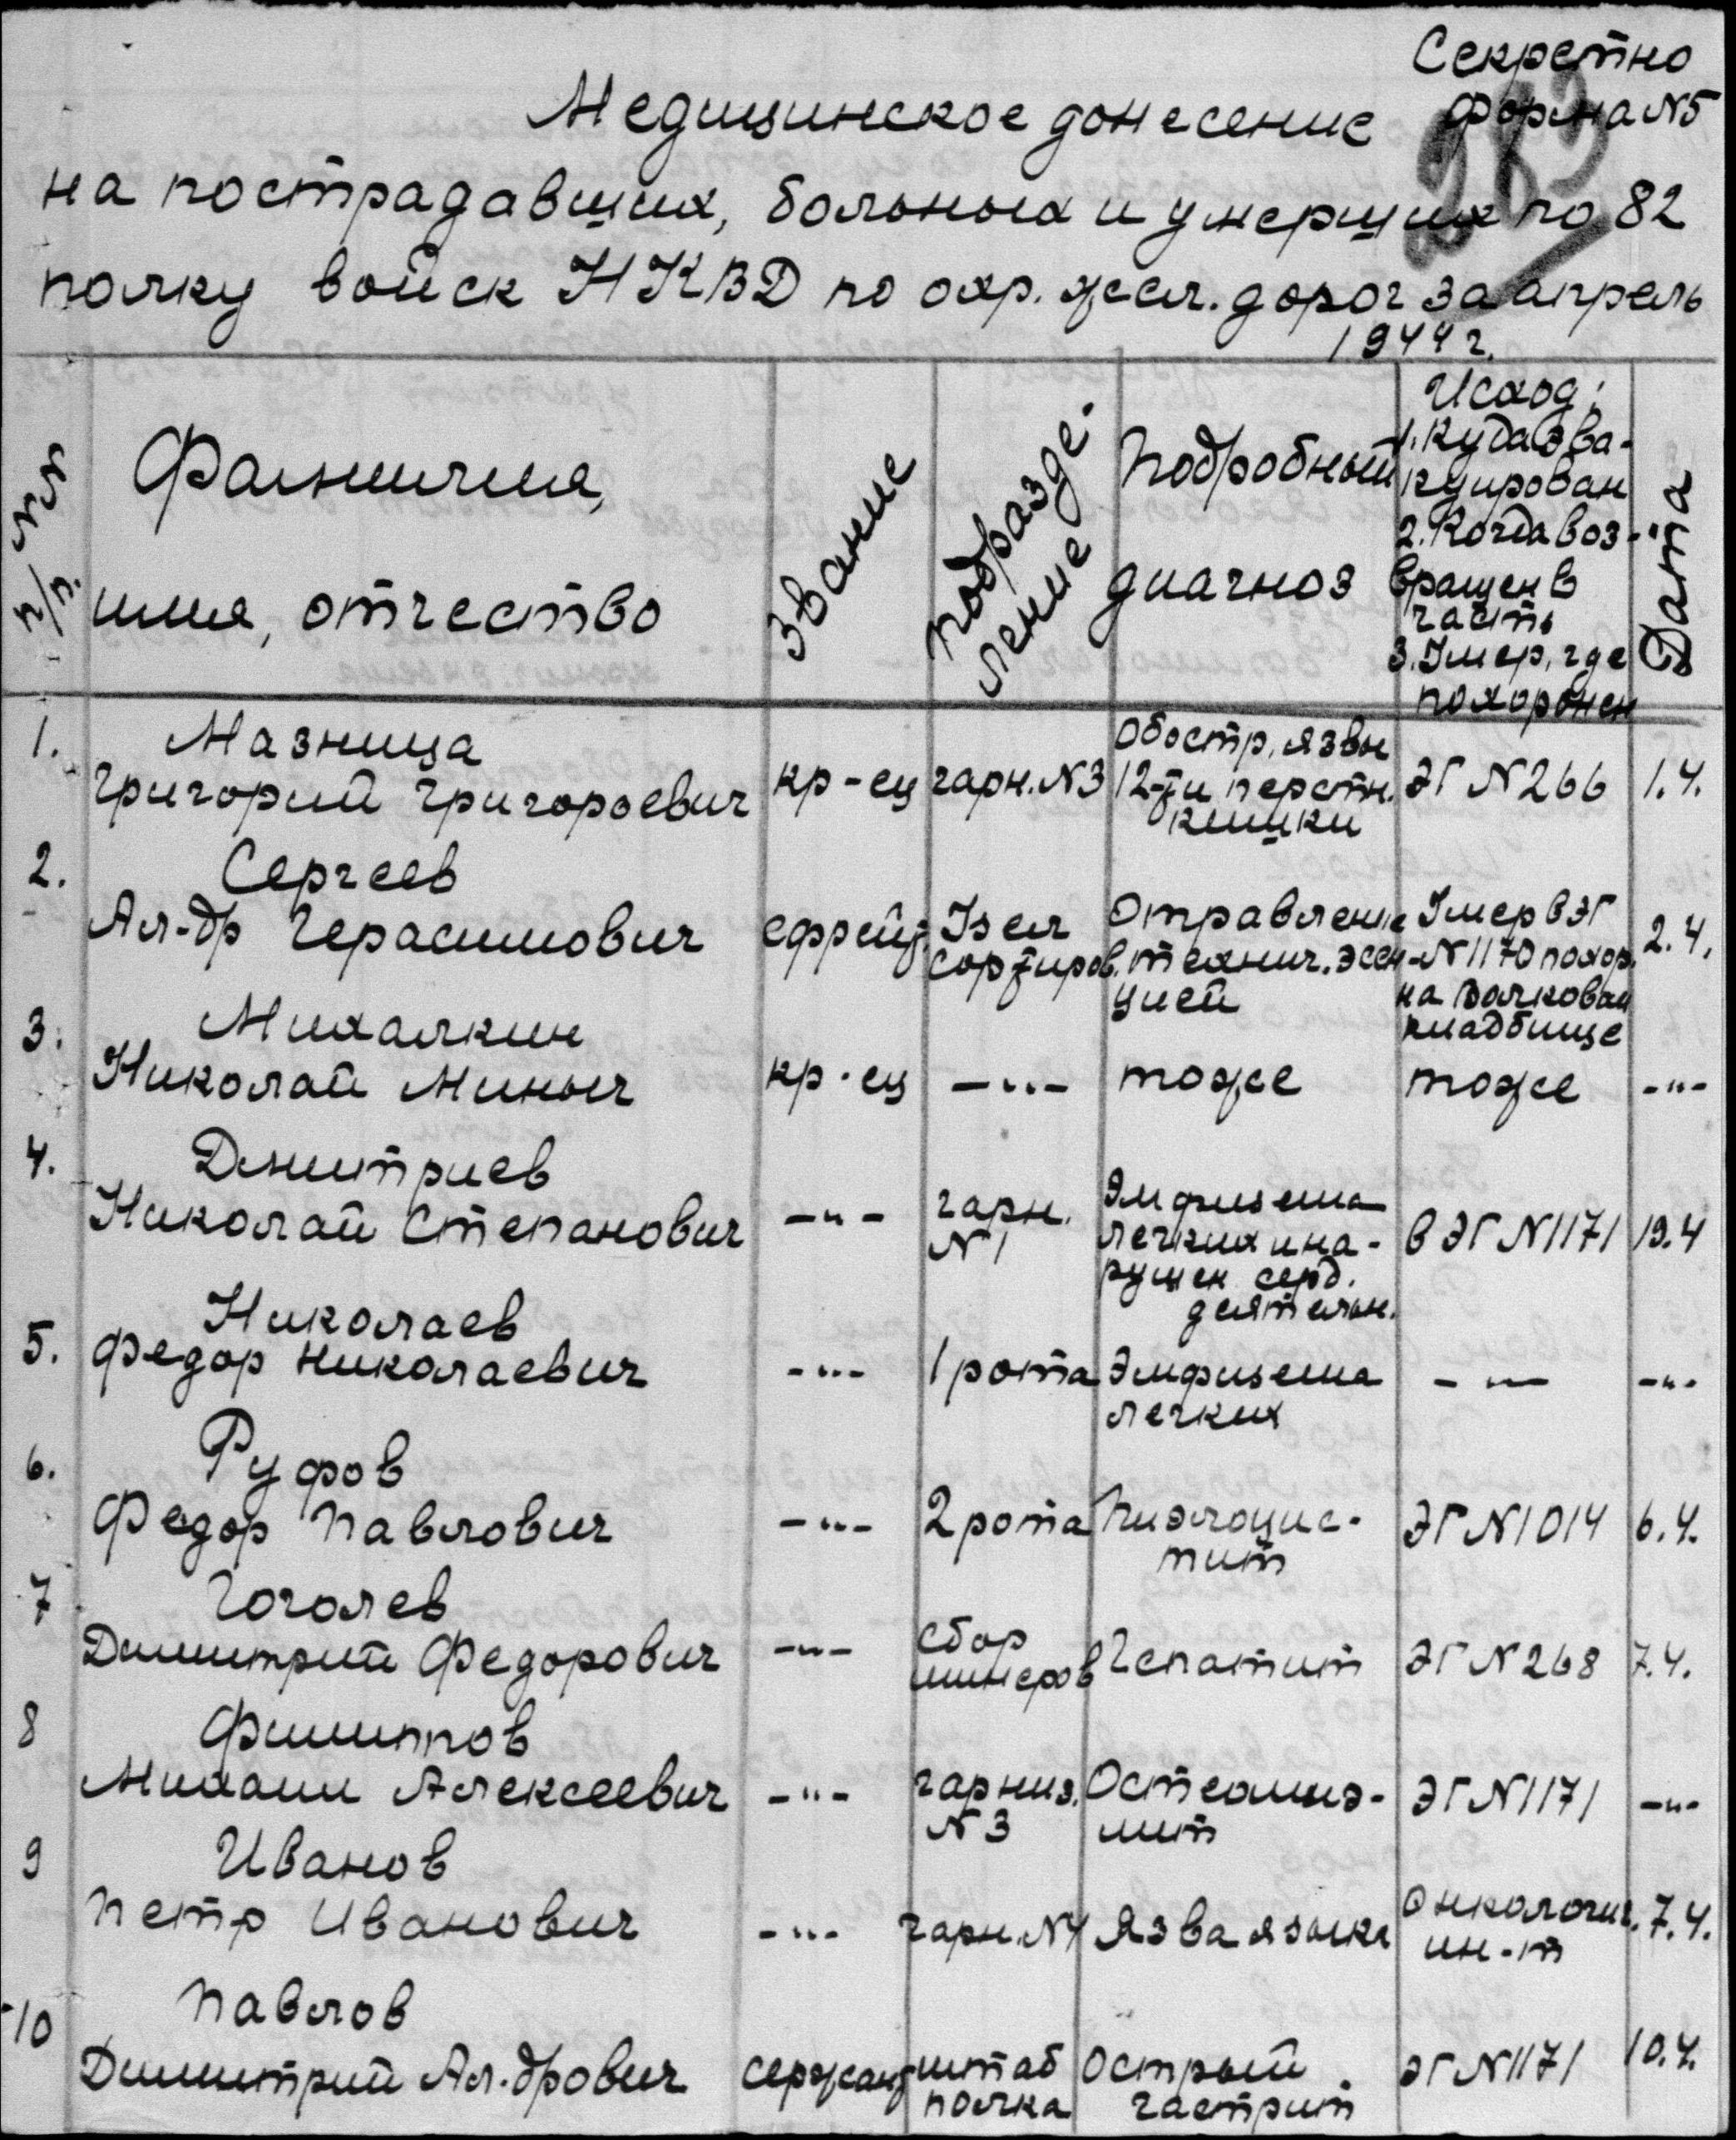 Секретно
Форма N5
Медицинское донесение
на пострадавших, больных и умерших по 82
полку войск НКВД по охр. жел. дорог за апрель
1944 г.
NN
п/п.
Фамилия,
имя, отчество
Звание
Подразде-
ление
Подробный
диагноз
Исход:
1. Куда эва-
куирован
2. Когда воз-
вращен в
часть
3. Умер, где
похоронен
Дата
1.
Мазница
Григорий Григорьевич
кр-ец
гарн. N3
Обостр. язвы
12-ти перстн.
кишки
ЭГ N266
1.4.
2.
Сергеев
Ал-др Герасимович
ефрейт.
сортиров.
Отравление
технич. эссен-
цией
Умер в ЭГ
N1170 похор.
на Волковом
кладбище
2.4.
3.
Михалкин
Николай Миныч
кр-ец
-"-
тоже
тоже
-"-
4.
Дмитриев
Николай Степанович
-"-
гарн.
N1
Эмфизема
легких и на-
рушен серд.
деятельн.
в ЭГ N1171
19.4
5.
Николаев
Федор Николаевич
-"-
1 рота
Эмфизема
легких
-"-
-"-
6.
Руфов
Федор Павлович
-"-
2 рота
Пиэлоцис-
тит
ЭГ N1014
6.4.
7
Гоголев
Димитрий Федорович
-"-
сбор
минеров
Гепатит
ЭГ N268
7.4.
8
Филиппов
Михаил Алексеевич
-"-
гарниз.
N3
Остеомиэ-
лит
ЭГ N1171
-"-
9
Иванов
Петр Иванович
-"-
гарн. N4
Язва языка
Онкологич.
ин-т
7.4.
10
Павлов
Димитрий Ал-дрович
сержант
штаб
полка
Острый
гастрит
ЭГ N1171
10.4.